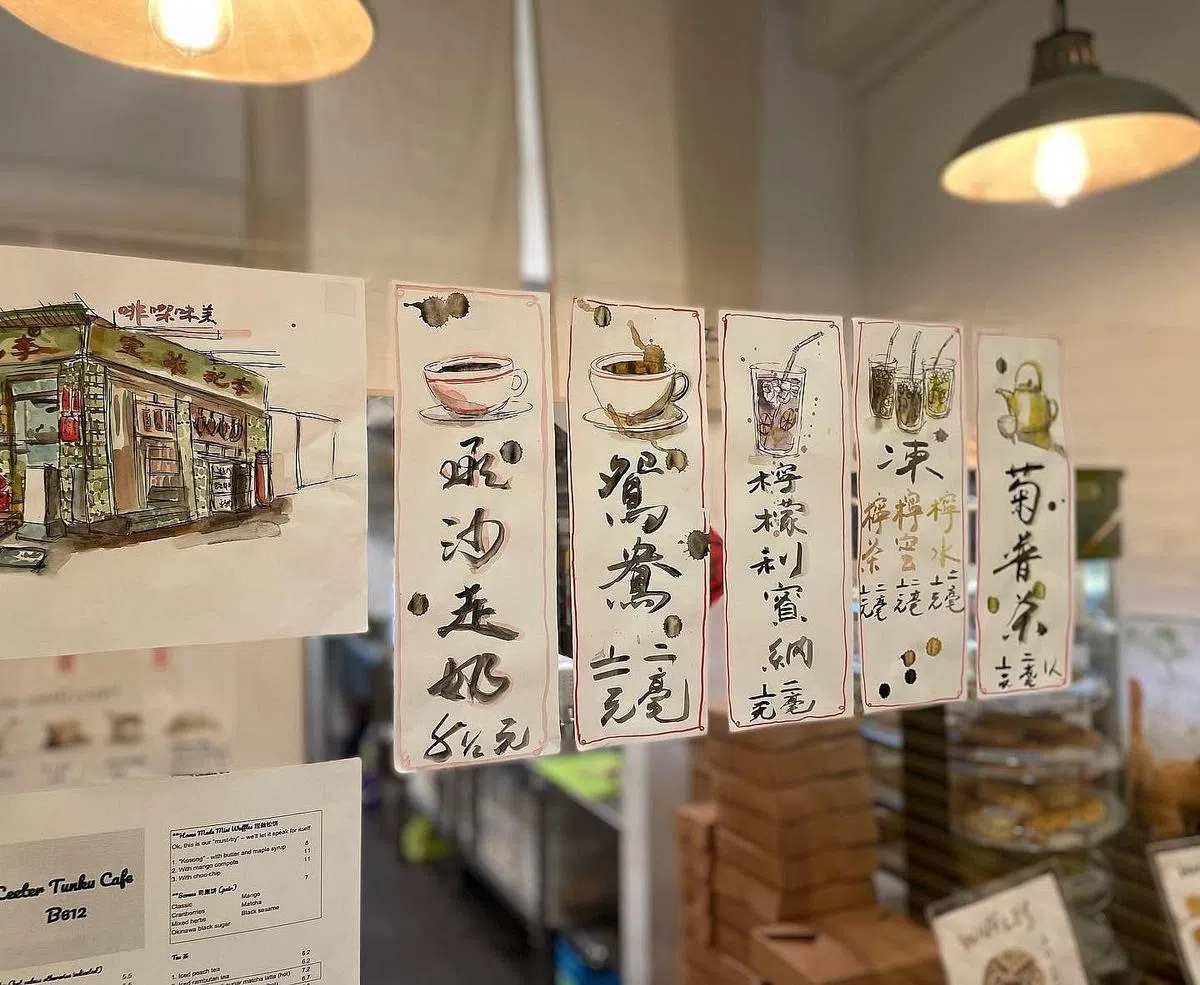 啡㗎味美
記李
飛
沙
走
奶
元
鴛
鴦
十一元二毫
檸
檬
利
賓
納
十一元二毫
凍
檸茶
檸蜜
檸水
十一元二毫
十一元二毫
十一元二毫
菊
普
茶
十一元二毫
Ceeter Tunku Cafe
B612
**Home Made Mini Waffles 现做松饼
Ok, this is our "must-try" – we'll let it speak for itself
1. "Kosong" - with butter and maple syrup 8
2. With mango compote 11
3. With choc-chip 11
**Scones 司康饼 (pair) 7
Classic Mango
Cranberries Matcha
Mixed herbs Black sesame
Okinawa black sugar
Tea 茶
1. Iced peach tea 6.2
2. Iced rambutan tea 6.2
sugar matcha latte (hot) 7.2
(hot) 6.7
5.5
WAFFLES